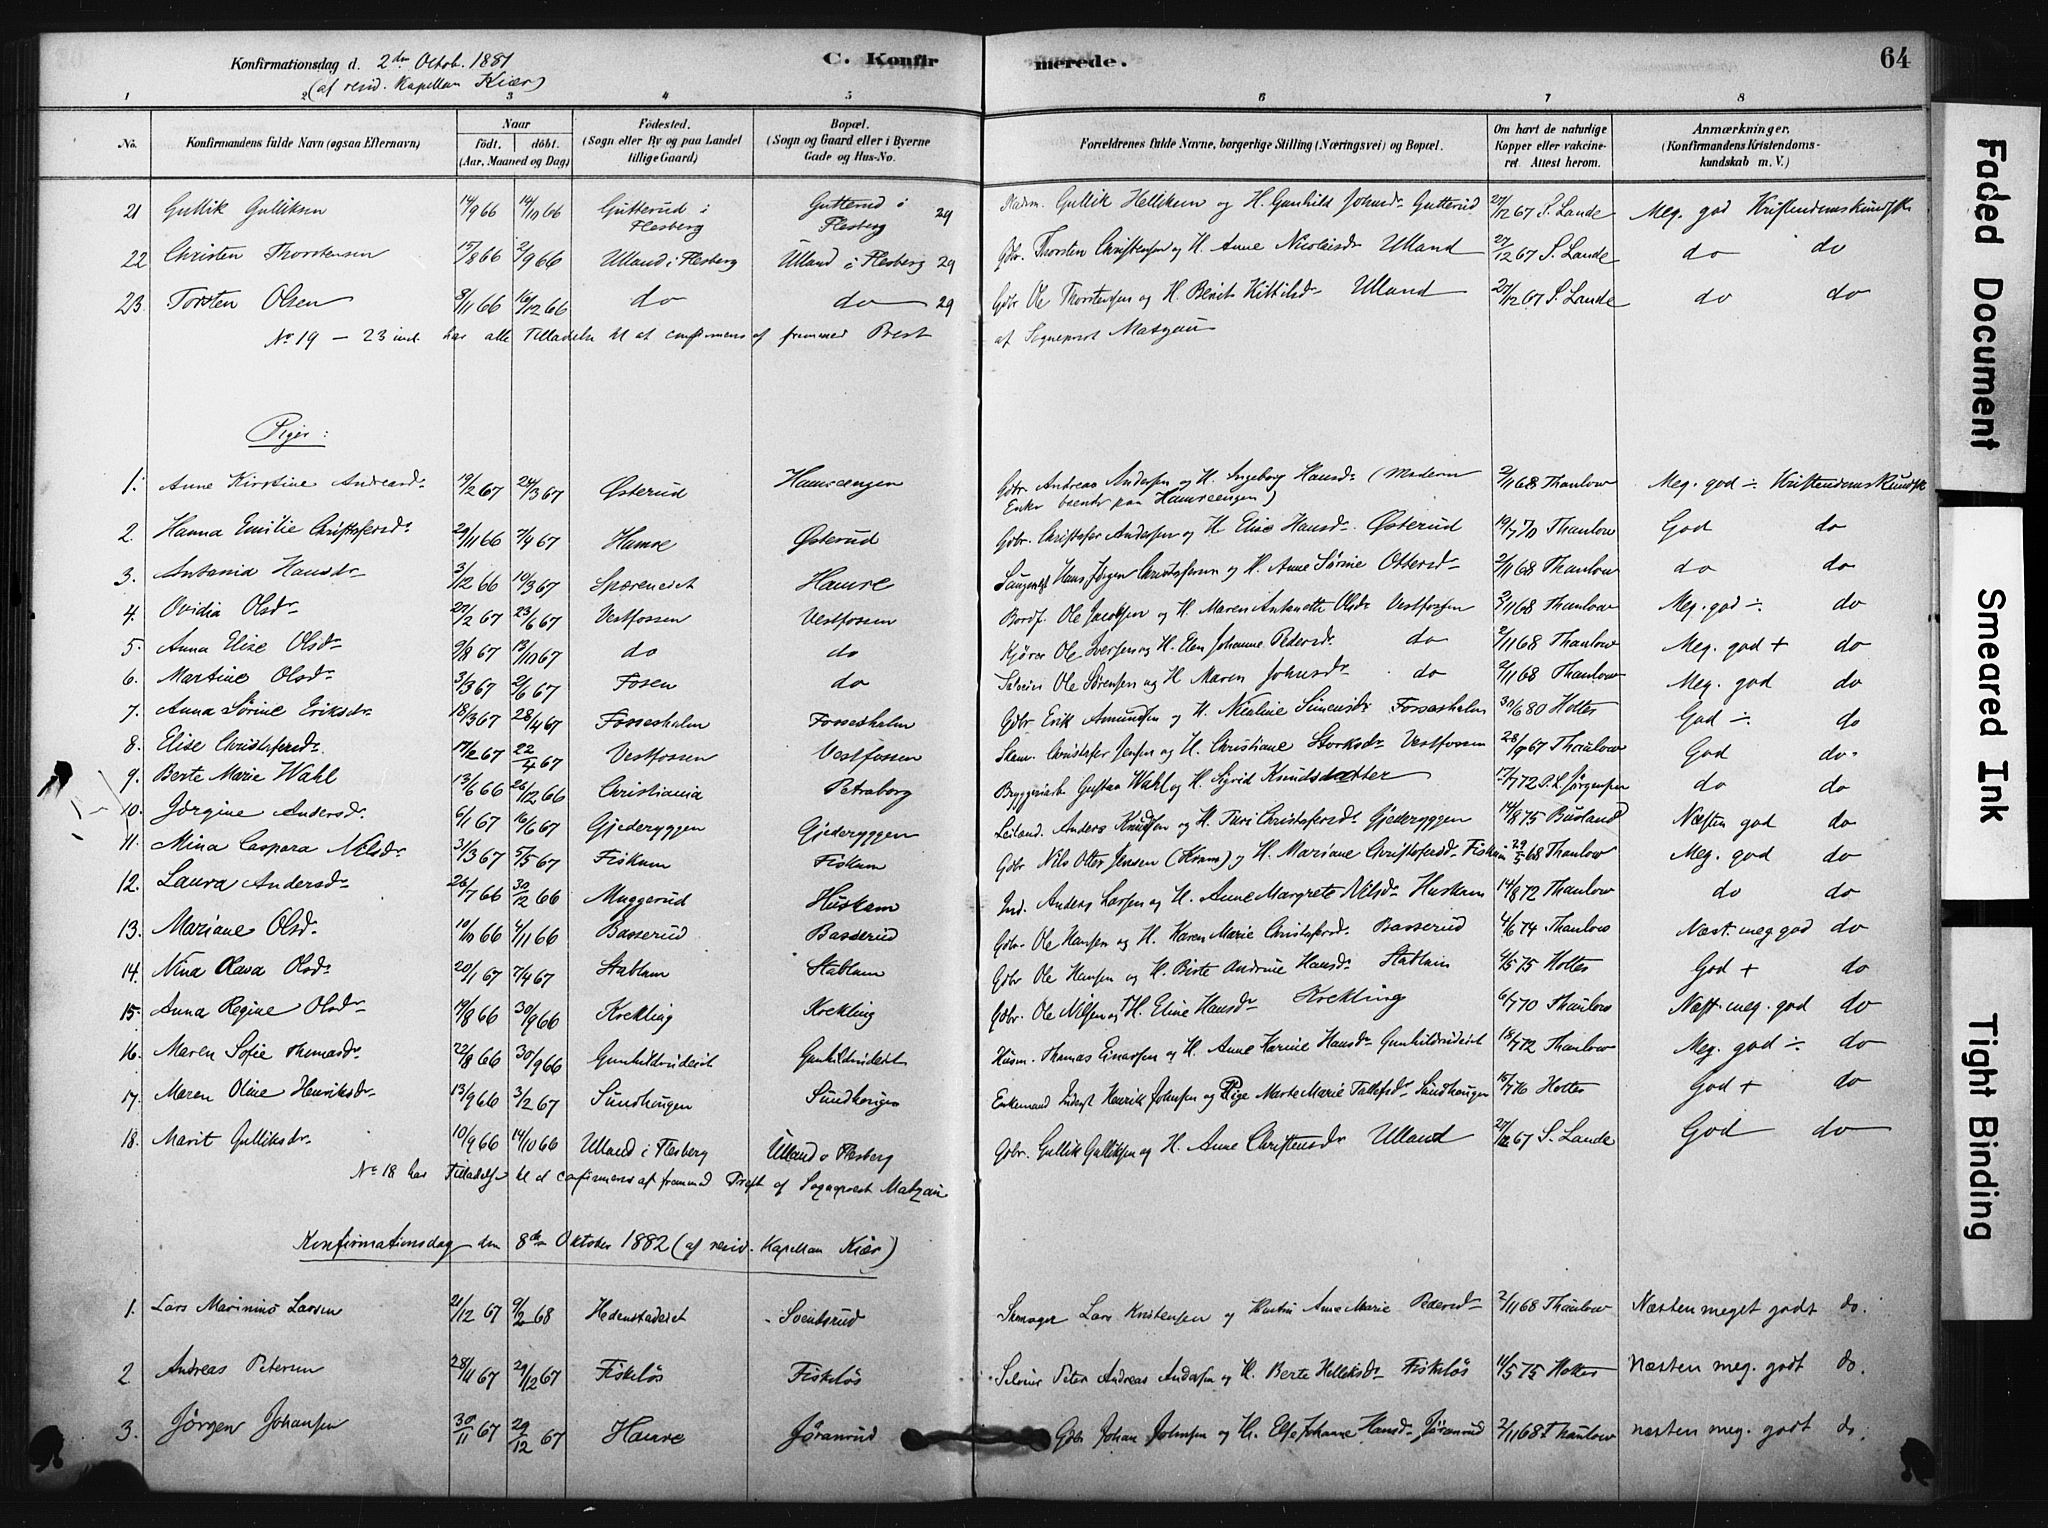 Konfirmationsdag d. 2den Octob. 1881 C. Konfirmerede. 64
(af resid. Kapellan Kiær)
1 2 3 4 5 6 7 8
No. Konfirmandens fulde Navn (ogsaa Efternavn) Naar födt. döbt. (Aar, Maaned og Dag) Födested. (Sogn eller By og paa Landet tillige Gaard) Bopæl. (Sogn og Gaard eller i Byerne Gade og Hus-No. Foræeldrenes fulde Navne, borgerlige Stilling (Næringsvei) og Bopæl. Om havt de naturlige Kopper eller vakcineret. Attest herom. Anmærkninger. (Konfirmandens Kristendomskundskab m. V.)
21 Gullik Gulliksen 14/9 66 14/10 66 Gutterud i Flesberg Gutterud i Flesberg 29 Husm. Gullik Helliksen og H. Gunhild Johnsdr Gutterud 27/12 67 S. Lande Meg. god Kristendomskundsk
22 Christen Thorstensen 15/8 66 2/9 66 Ulland i Flesberg Ulland i Flesberg 29 Gbr. Thorsten Christensen og H. Anne Nicolaisdr Ulland 27/12 67 S. Lande do do
23. Torsten Olsen 8/11 66 16/12 66 do do 29 Gdbr Ole Thorstensen og H. Berit Kittilsdr Ulland 27/12 67 S. Lande do do
No 19 - 23 incl. har alle Tilladelse til at confirmeres af fremmed Prest af Sogneprest Matzau
Piger:
1. Anne Kirstine Andreasdr 19/2 67 24/3 67 Østerud Hamreengen Gdbr. Andreas Andersen og H. Ingeborg Hansdr (Moderen Enke boende paa Hamreengen) 2/11 68 Thaulow Meg. god ÷ Kristendomskundsk
2. Hanna Emilie Christofersdr 29/11 66 7/4 67 Hamre Østerud Gdbr. Christofer Andersen og H. Eline Hansdr. Østerud 19/7 70 Thaulow God do
3. Antonia Hansdr 3/12 66 10/3 67 Sporeneiet Hamre Hans Jørgen Christofersen og H. Anne Sørine Ottersdr 2/11 68 Thaulow do do
4. Ovidia Olsdr 27/2 67 23/6 67 Vestfossen Vestfossen Bordf. Ole Jacobsen og H. Maren Antonette Olsdr Vestfossen 2/11 68 Thaulow Meg. god ÷ do
5. Anna Elise Olsdr 9/8 67 13/10 67 do do Kjører Ole Iversen og H. Elen Johanne Pedersdr do 2/11 68 Thaulow Meg. god + do
6. Martine Olsdr 3/3 67 2/6 67 Fosen do Ole Sørensen og H Maren Johnsdr. do 2/11 68 Thaulow Meg. god do
7. Anna Sørine Eriksdr 18/3 67 28/4 67 Fossesholm Fossesholm Gdbr. Erik Amundsen og H. Nicoline Simensdr Fossesholm 30/6 80 Holter God ÷ do
8. Elise Christofersdr. 17/2 67 22/4 67 Vestfossen Vestfossen Skom. Christofer Jensen og H. Christiane Storksdr Vestfossen 28/9 67 Thaulow God do.
9. Berte Marie Wahl 13/6 66 26/12 66 Christiania Petraborg Bryggeriarb. Gustav Wahl og H. Sigrid Knudsdatter 17/7 72 P. L. Jørgensen do do
10. Jørgine Andersdr. 6/1 67 16/6 67 Gjederyggen Gjederyggen Leiland. Anders Knudsen og H. Turi Christofersdr Gjederyggen 14/8 75 Busland Næsten god do
11. Mina Caspara Nilsdr 31/3 67 5/5 67 Fiskum Fiskum Gdbr. Nils Otter Jensen (Kram) og H. Mariane Christofersdr Fiskum 29/5 68 Thaulow Meg. god do
12. Laura Andersdr 26/7 66 30/12 66 Muggerud Huskam Ind. Anders Larsen og H. Anne Margrete Nilsdr Huskam 14/8 72 Thaulow do do
13. Mariane Olsdr. 10/10 66 4/11 66 Basserud Basserud Gdbr. Ole Hansen og H. Karen Marie Christofersdr. Basserud 4/6 74 Thaulow Næst. meg god do
14. Nina Olava Olsdr 20/1 67 7/4 67 Stablum Stablum Gdbr Ole Hansen og H. Birte Andrine Hansdr Stablum 4/5 75 Holter God + do
15. Anna Regine Olsdr 19/8 66 30/9 66 Krekling Krekling Gdbr. Ole Nilsen og H. Eline Hansdr Krekling 6/7 70 Thaulow Næst. meg. god do
16. Maren Sofie Thomasdr 22/8 66 30/9 66 Gunhildrudeiet Gunhildrudeiet Husm. Thomas Einarsen og H. Anne Karine Hansdr Gunhildrudeiet 18/7 72 Thaulow Meg. god ÷ do
17. Maren Oline Henriksdr 13/9 66 3/2 67 Sundhaugen Sundhaugen Enkemand Inderst Henrik Johnsen og Pige Marte Marie Tollefsdr Sundhaugen 15/7 76 Holter God + do
18. Marit Gulliksdr. 10/9 66 14/10 66 Ulland i Flesberg Ulland i Flesberg Gdbr. Gullik Gulliksen og H. Anne Christensdr Ulland 27/12 67 S. Lande God do
No 18 har Tilladelse til at confirmeres af fremmed Prest af Sogneprest Matzau
Konfirmationsdag den 8de Oktober 1882 (af resid. Kapellan Kiær)
1. Lars Marinius Larsen 21/12 67 9/2 68 Hedenstadeiet Svendsrud Skmager Lars Kristensen og Hustru Anne Marie Pedersdr 2/11 68 Thaulow Næsten meget godt do.
2 Andreas Petersen 28/11 67 29/12 67 Fiskeløs Fiskeløs Selveier Peter Andreas Andersen og H. Berte Helleksdr Fiskeløs 11/5 75 Holter næsten meg. godt do.
3. Jørgen Johansen 30/11 67 29/12 67 Hamre Jøranrud Gdbr Johan Johnsen og H. Else Johanne Hansdr Jøranrud 2/11 68 Thaulow næsten meg. godt do.
Faded Document
Smeared Ink
Tight Binding